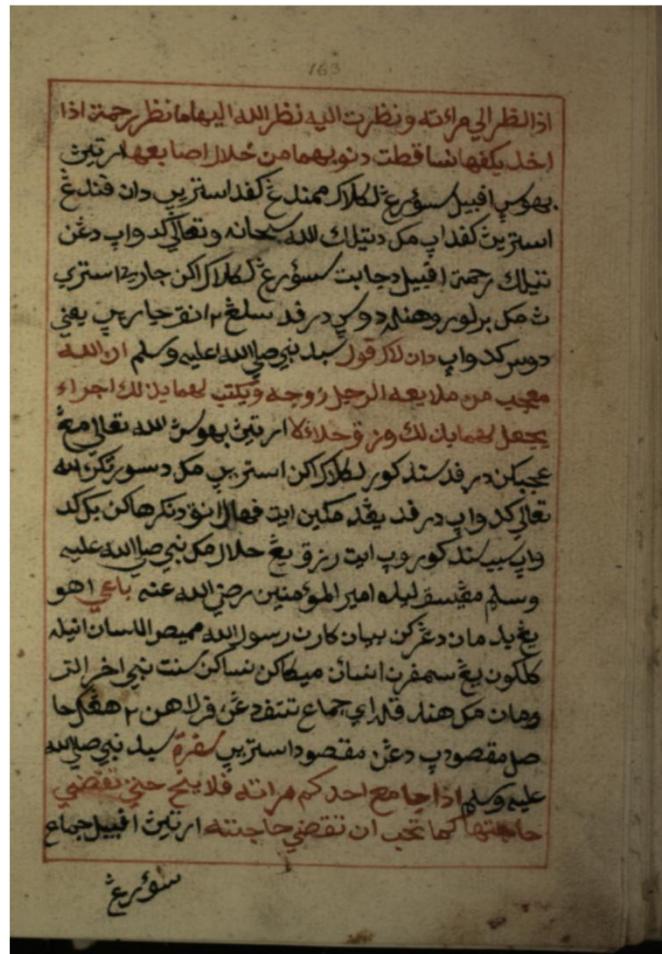 163
اذا نظر الي مراته ونظرت اليه نظر الله اليهما نظر رحمة اذا
اخذ بكفها تساقطت دنوبهما من خلال اصابعها ارتيث
بهوس افبيل سؤرڠ لكلاك ممندڠ كفد استريث دان فندڠ
استريث كفداڽ مك دتيلك الله سبحانه وتعالي كدواڽ دڠن
تيلك رحمة افبيل دجابت سؤرڠ لكلاك اكن جاري٢ استري
ث مك برلوروهنله دوسڽ در فد سلڠ٢ انق جاريڽ يعني
دوس كدواڽ دان لاك قول سبد نبي صلي الله عليه وسلم ان الله
معجب من ملايعه الرجل زوجه ويكتب لهما بذلك اجراء
يجعل لهما بذلك ورزق حلالا ارتيث بهوس الله تعالي مڠ
عجبكن در فد سند كور لكلاك اكن استريڽ مك دسورتكن الله
تعالي كدواڽ در فد يڠد مكين ايت فهال انق دنكرهاكن بك كد
واڽ سبب سند كوروڽ ايت رزق يڠ حلال مك نبي صلي الله عليه
وسلم امير المؤمنين رضي الله عنه باعي اهو
يڠ بدمان دڠركن بيان كارن رسول الله اللسان انيله
كلكون يڠ سمفرن انسان نساكن سنت نبي اخر الز
ومان مك هندقله اي جماع دڠن فرلاهن٢ هڠك حا
صل مقصودڽ دڠن مقصود استريڽ سبد نبي صلي الله
عليه وسلم اذا جامع احدكم مراته فلا ينح حتي تقضي
حاجتها كما تحب ان تقضي حاجته ارتيث افبيل جماع
سؤرڠ